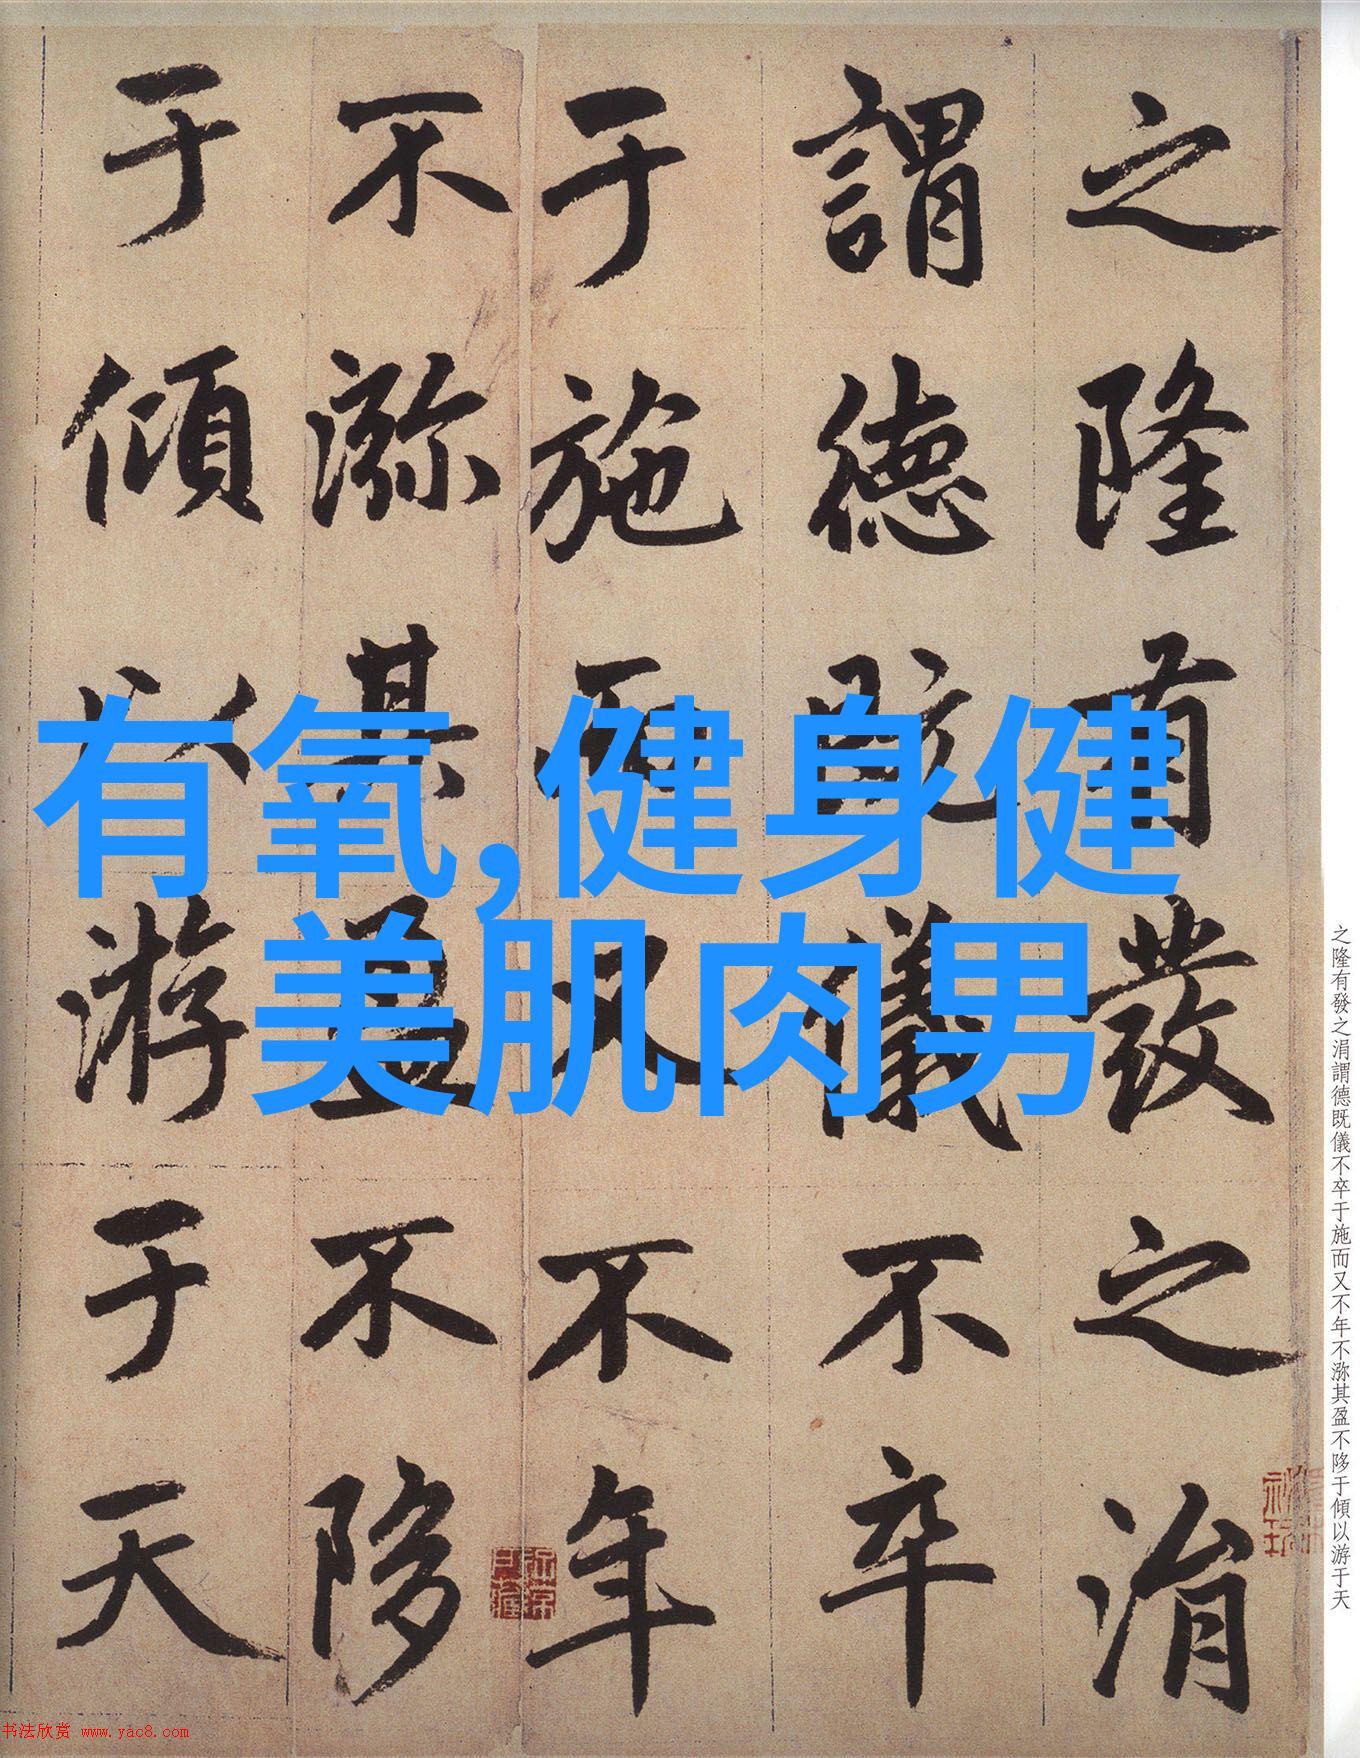 之隆有發之涓
謂德既儀不卒
于施而又不年
不㳽其盈不陊
于傾以游于天
有氧,健身健
美肌肉男
之隆有發之涓謂德既儀不卒于施而又不年不㳽其盈不陊于傾以游于天
书法欣赏 www.yac8.com